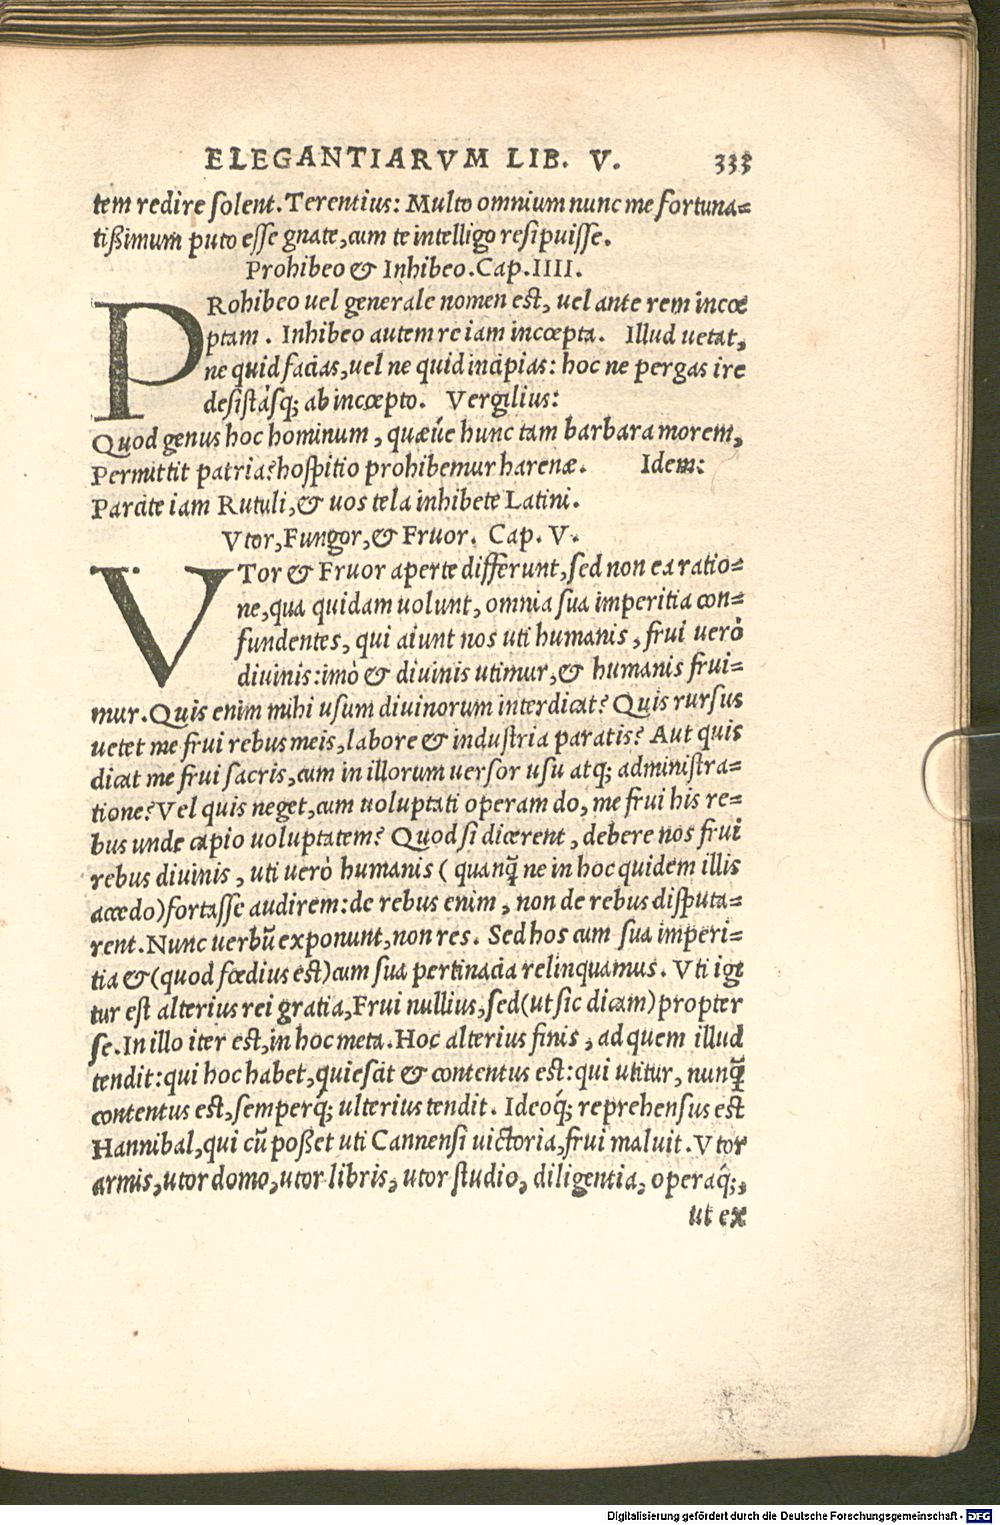 ELEGANTIARVM LIB. V. 333
tem redire solent. Terentius: Multo omnium nunc me fortuna=
tißimum puto esse gnate, cum te intelligo resipuisse.
Prohibeo & Inhibeo. Cap. IIII.
PRohibeo uel generale nomen est, uel ante rem incœ
ptam. Inhibeo autem re iam incœpta. Illud uetat,
ne quid facias, uel ne quid incipias: hoc ne pergas ire
desistásq; ab incœpto. Vergilius:
Quod genus hoc hominum, quæúe hunc tam barbara morem,
Permittit patria? hospitio prohibemur harenæ. Idem:
Parcite iam Rutuli, & uos tela inhibete Latini.
Vtor, Fungor, & Fruor. Cap. V.
VTor & Fruor aperte differunt, sed non ea ratio=
ne, qua quidam uolunt, omnia sua imperitia con=
fundentes, qui aiunt nos uti humanis, frui uerò
diuinis: imò & diuinis utimur, & humanis frui=
mur. Quis enim mihi usum diuinorum interdicat? Quis rursus
uetet me frui rebus meis, labore & industria paratis? Aut quis
dicat me frui sacris, cum in illorum uersor usu atq; administra=
tione? Vel quis neget, cum uoluptati operam do, me frui his re=
bus unde capio uoluptatem? Quod si dicerent, debere nos frui
rebus diuinis, uti uerò humanis (quanq̃ ne in hoc quidem illis
accedo) fortasse audirem: de rebus enim, non de rebus disputa=
rent. Nunc uerbũ exponunt, non res. Sed hos cum sua imperi=
tia & (quod fœdius est) cum sua pertinacia relinquamus. Vti igi
tur est alterius rei gratia, Frui nullius, sed (ut sic dicam) propter
se. In illo iter est, in hoc meta. Hoc alterius finis, ad quem illud
tendit: qui hoc habet, quiescit & contentus est: qui utitur, nunq̃
contentus est, semperq́; ulterius tendit. Ideoq́; reprehensus est
Hannibal, qui cũ poßet uti Cannensi uictoria, frui maluit. Vtor
armis, utor domo, utor libris, utor studio, diligentia, operaq́;,
ut ex
Digitalisierung gefördert durch die Deutsche Forschungsgemeinschaft - DFG